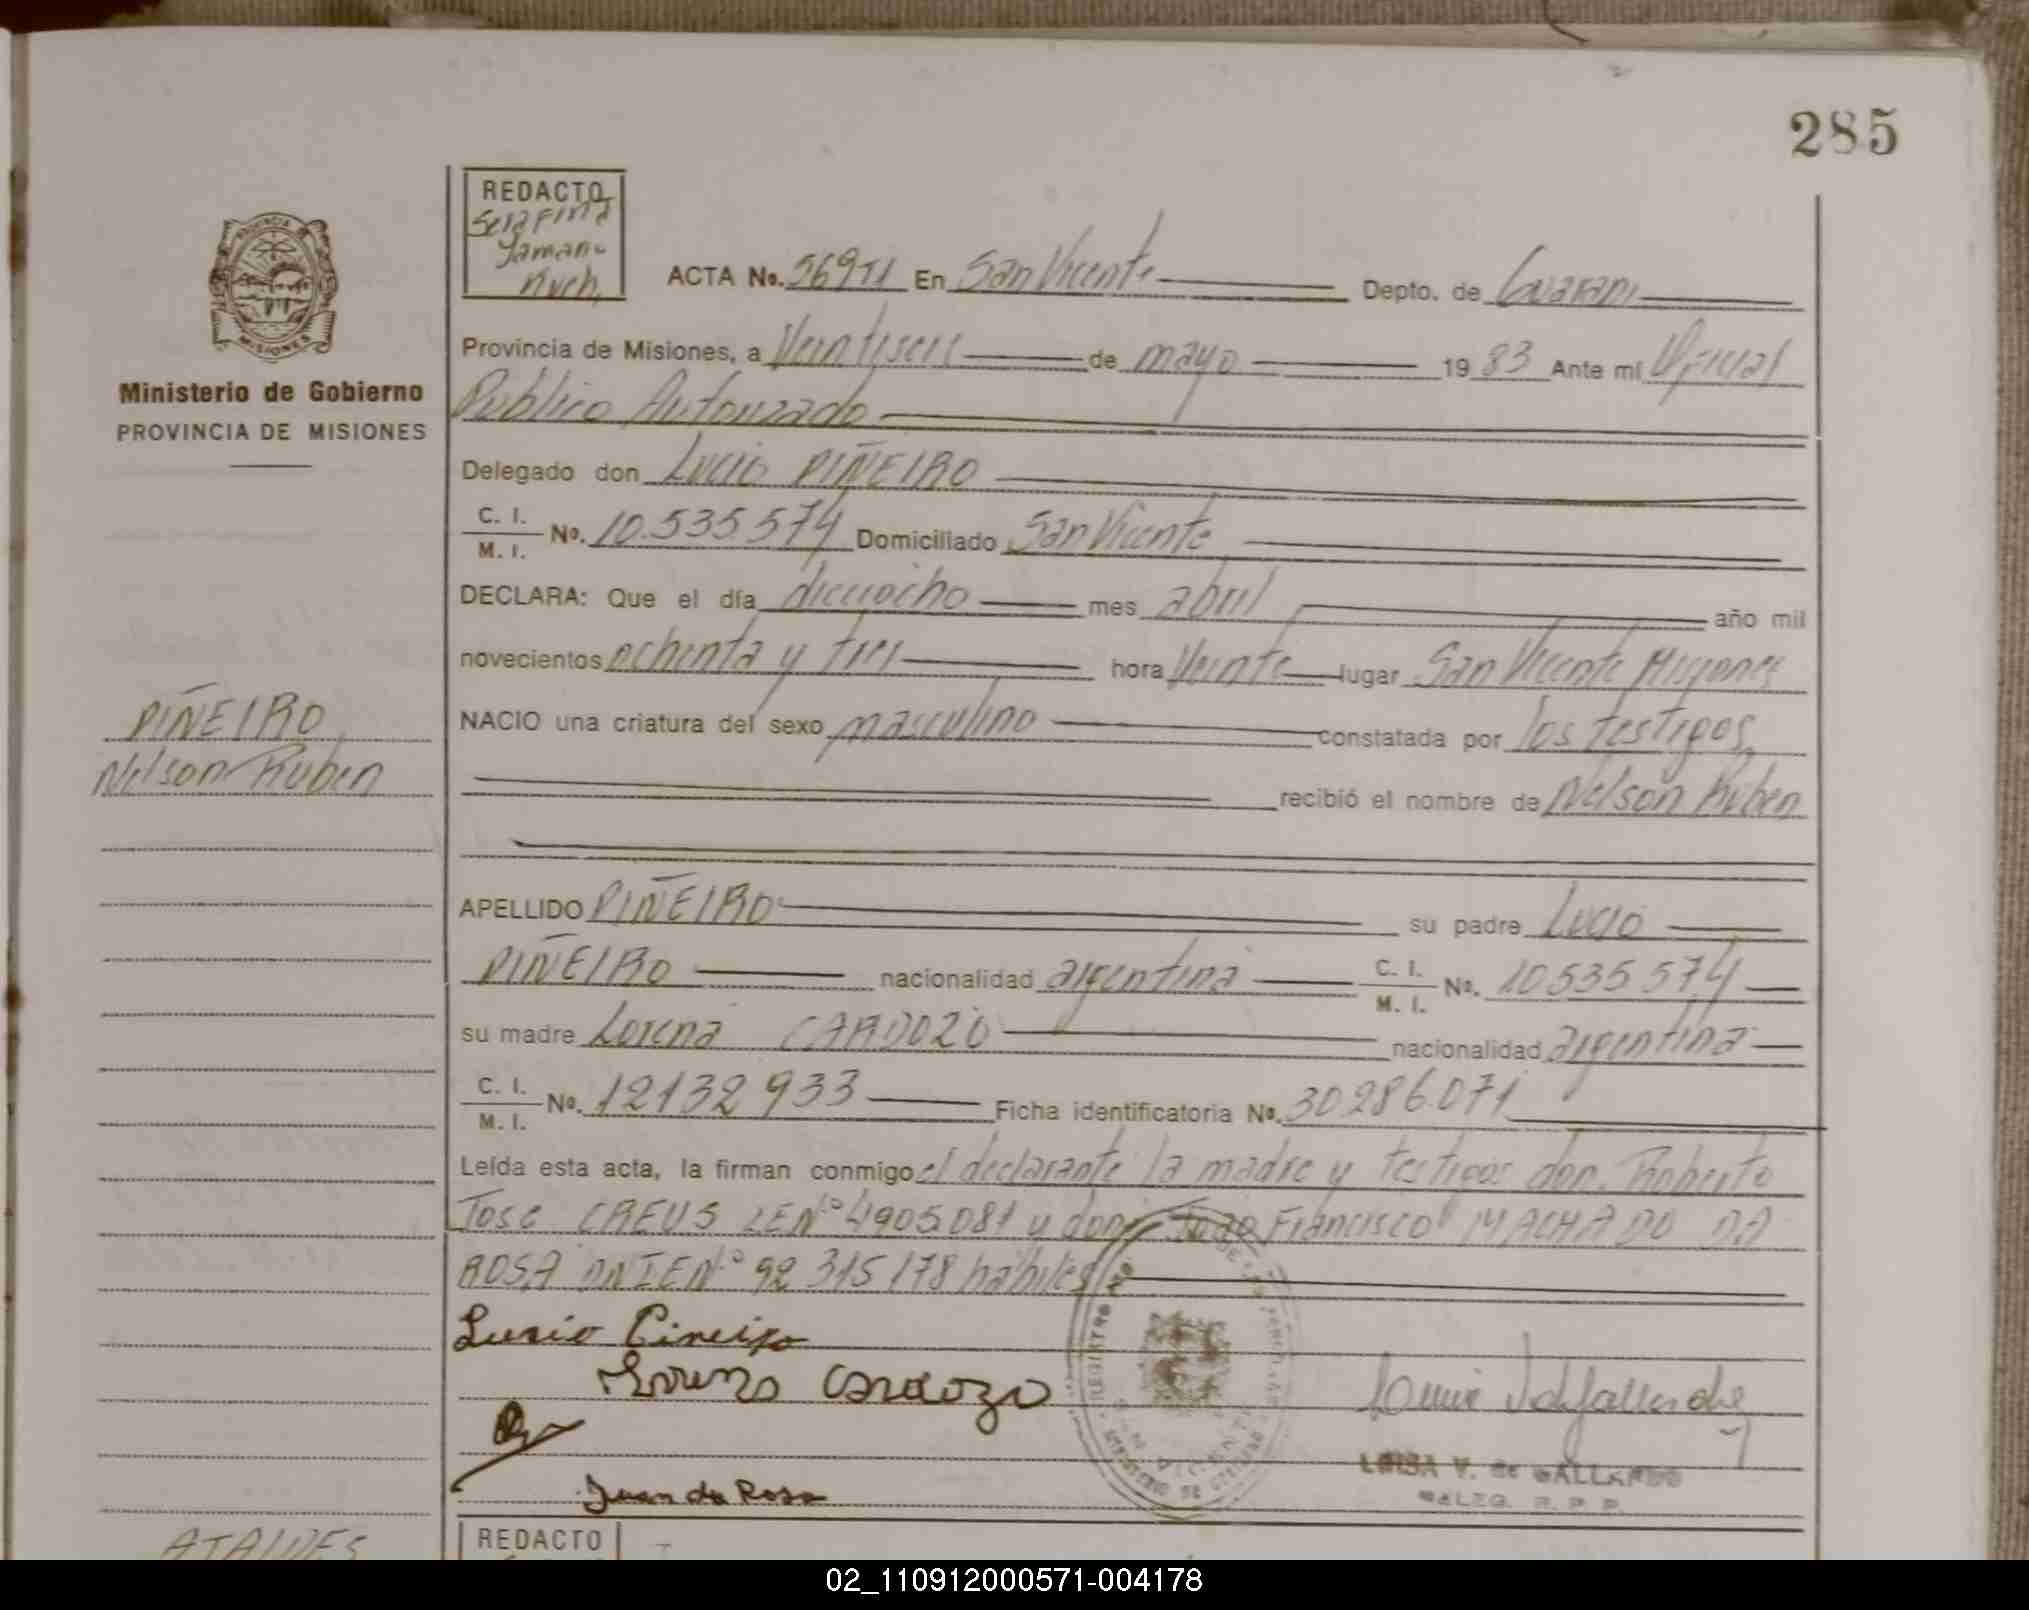 285
REDACTO
Serafina
ACTA No. 569TI En San Vicente Depto. de Guarani
Provincia de Misiones, a Veintiseis de mayo 1983 Ante mí Oficial
Público Autorizado
Ministerio de Gobierno
PROVINCIA DE MISIONES
Delegado don Lucio PIÑEIRO
C. I.
M. I. No. 10.535.574 Domiciliado San Vicente
DECLARA: Que el día dieciocho mes abril año mil
novecientos ochenta y tres hora Veinte lugar San Vicente Misiones
NACIO una criatura del sexo masculino constatada por los testigos
PIÑEIRO
Nelson Ruben
recibió el nombre de Nelson Ruben
APELLIDO PIÑEIRO su padre Lucio
PIÑEIRO nacionalidad argentina C. I. M. I. No. 10535574
su madre Lorena CARDOZO nacionalidad argentina
C. I. M. I. No. 12132933 Ficha identificatoria No. 30286.071
Leída esta acta, la firman conmigo el declarante la madre y testigos don. Roberto
Jose CREUS LEN° 4905.081 y don Joao Francisco MACHADO DA
ROSA DNIEN° 92 315178 habiles
Lucio Pineiro
Lorena Cardozo
Juan da Rosa
LUISA V. de GALLARDO
REDACTO
02_110912000571-004178